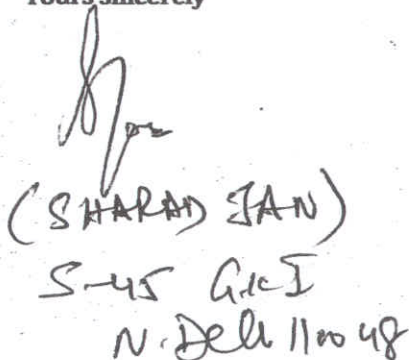 Yours sincerely
(SHARAD JAN)
S-45 G.K I
N. Delh 110048